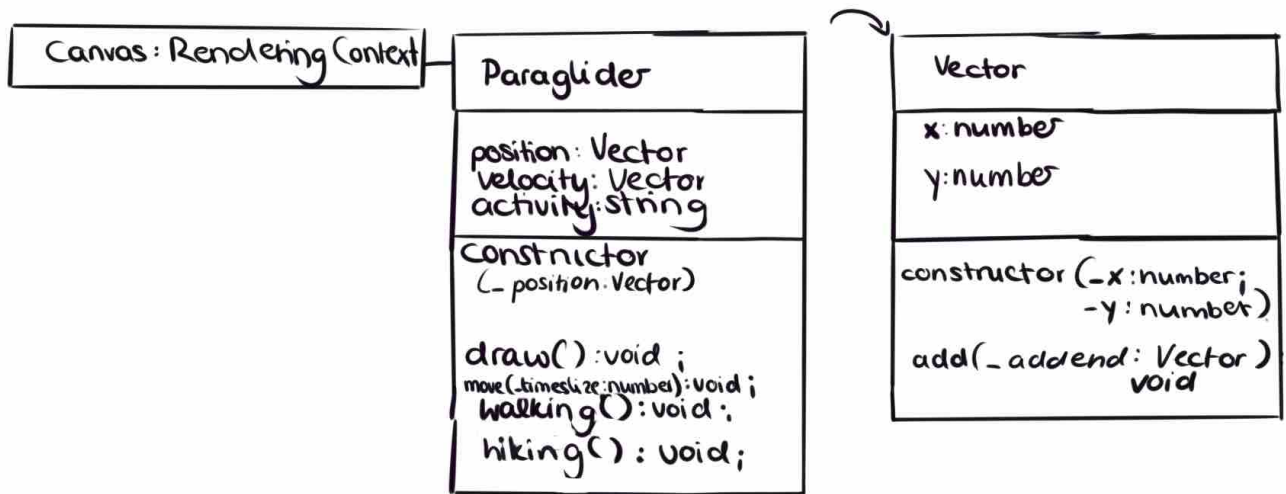 Canvas: Rendering Context
Paraglider
position: Vector
velocity: Vector
activity: string
Constructor
(_position: Vector)
draw(): void ;
move(_timeslize: number): void ;
walking(): void ;
hiking() : void ;
Vector
x: number
y: number
constructor (_x: number;
_y: number)
add(_addend: Vector )
void